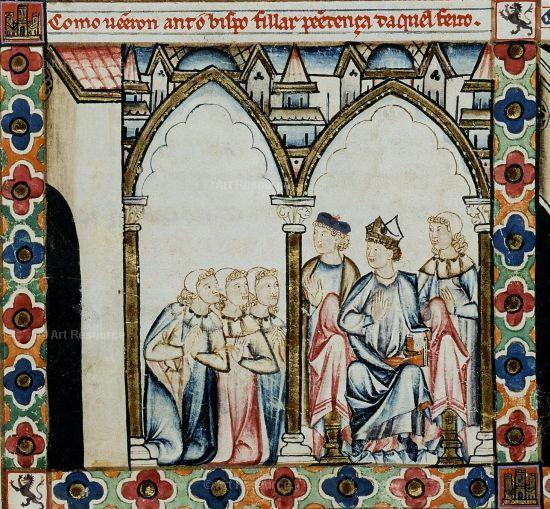 Como ueẽron antõ bispo fillar pẽetença daquel feito.
Art Resource
Art Resource